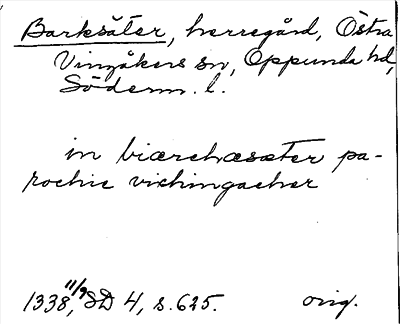 Barksäter, herregård, Östra
Vingåkers sn, Oppunda hd,
Söderm. l.
in biærchæsæter pa-
rochie vichingaeher
1338, 11/9, SD 4, s. 625. orig.